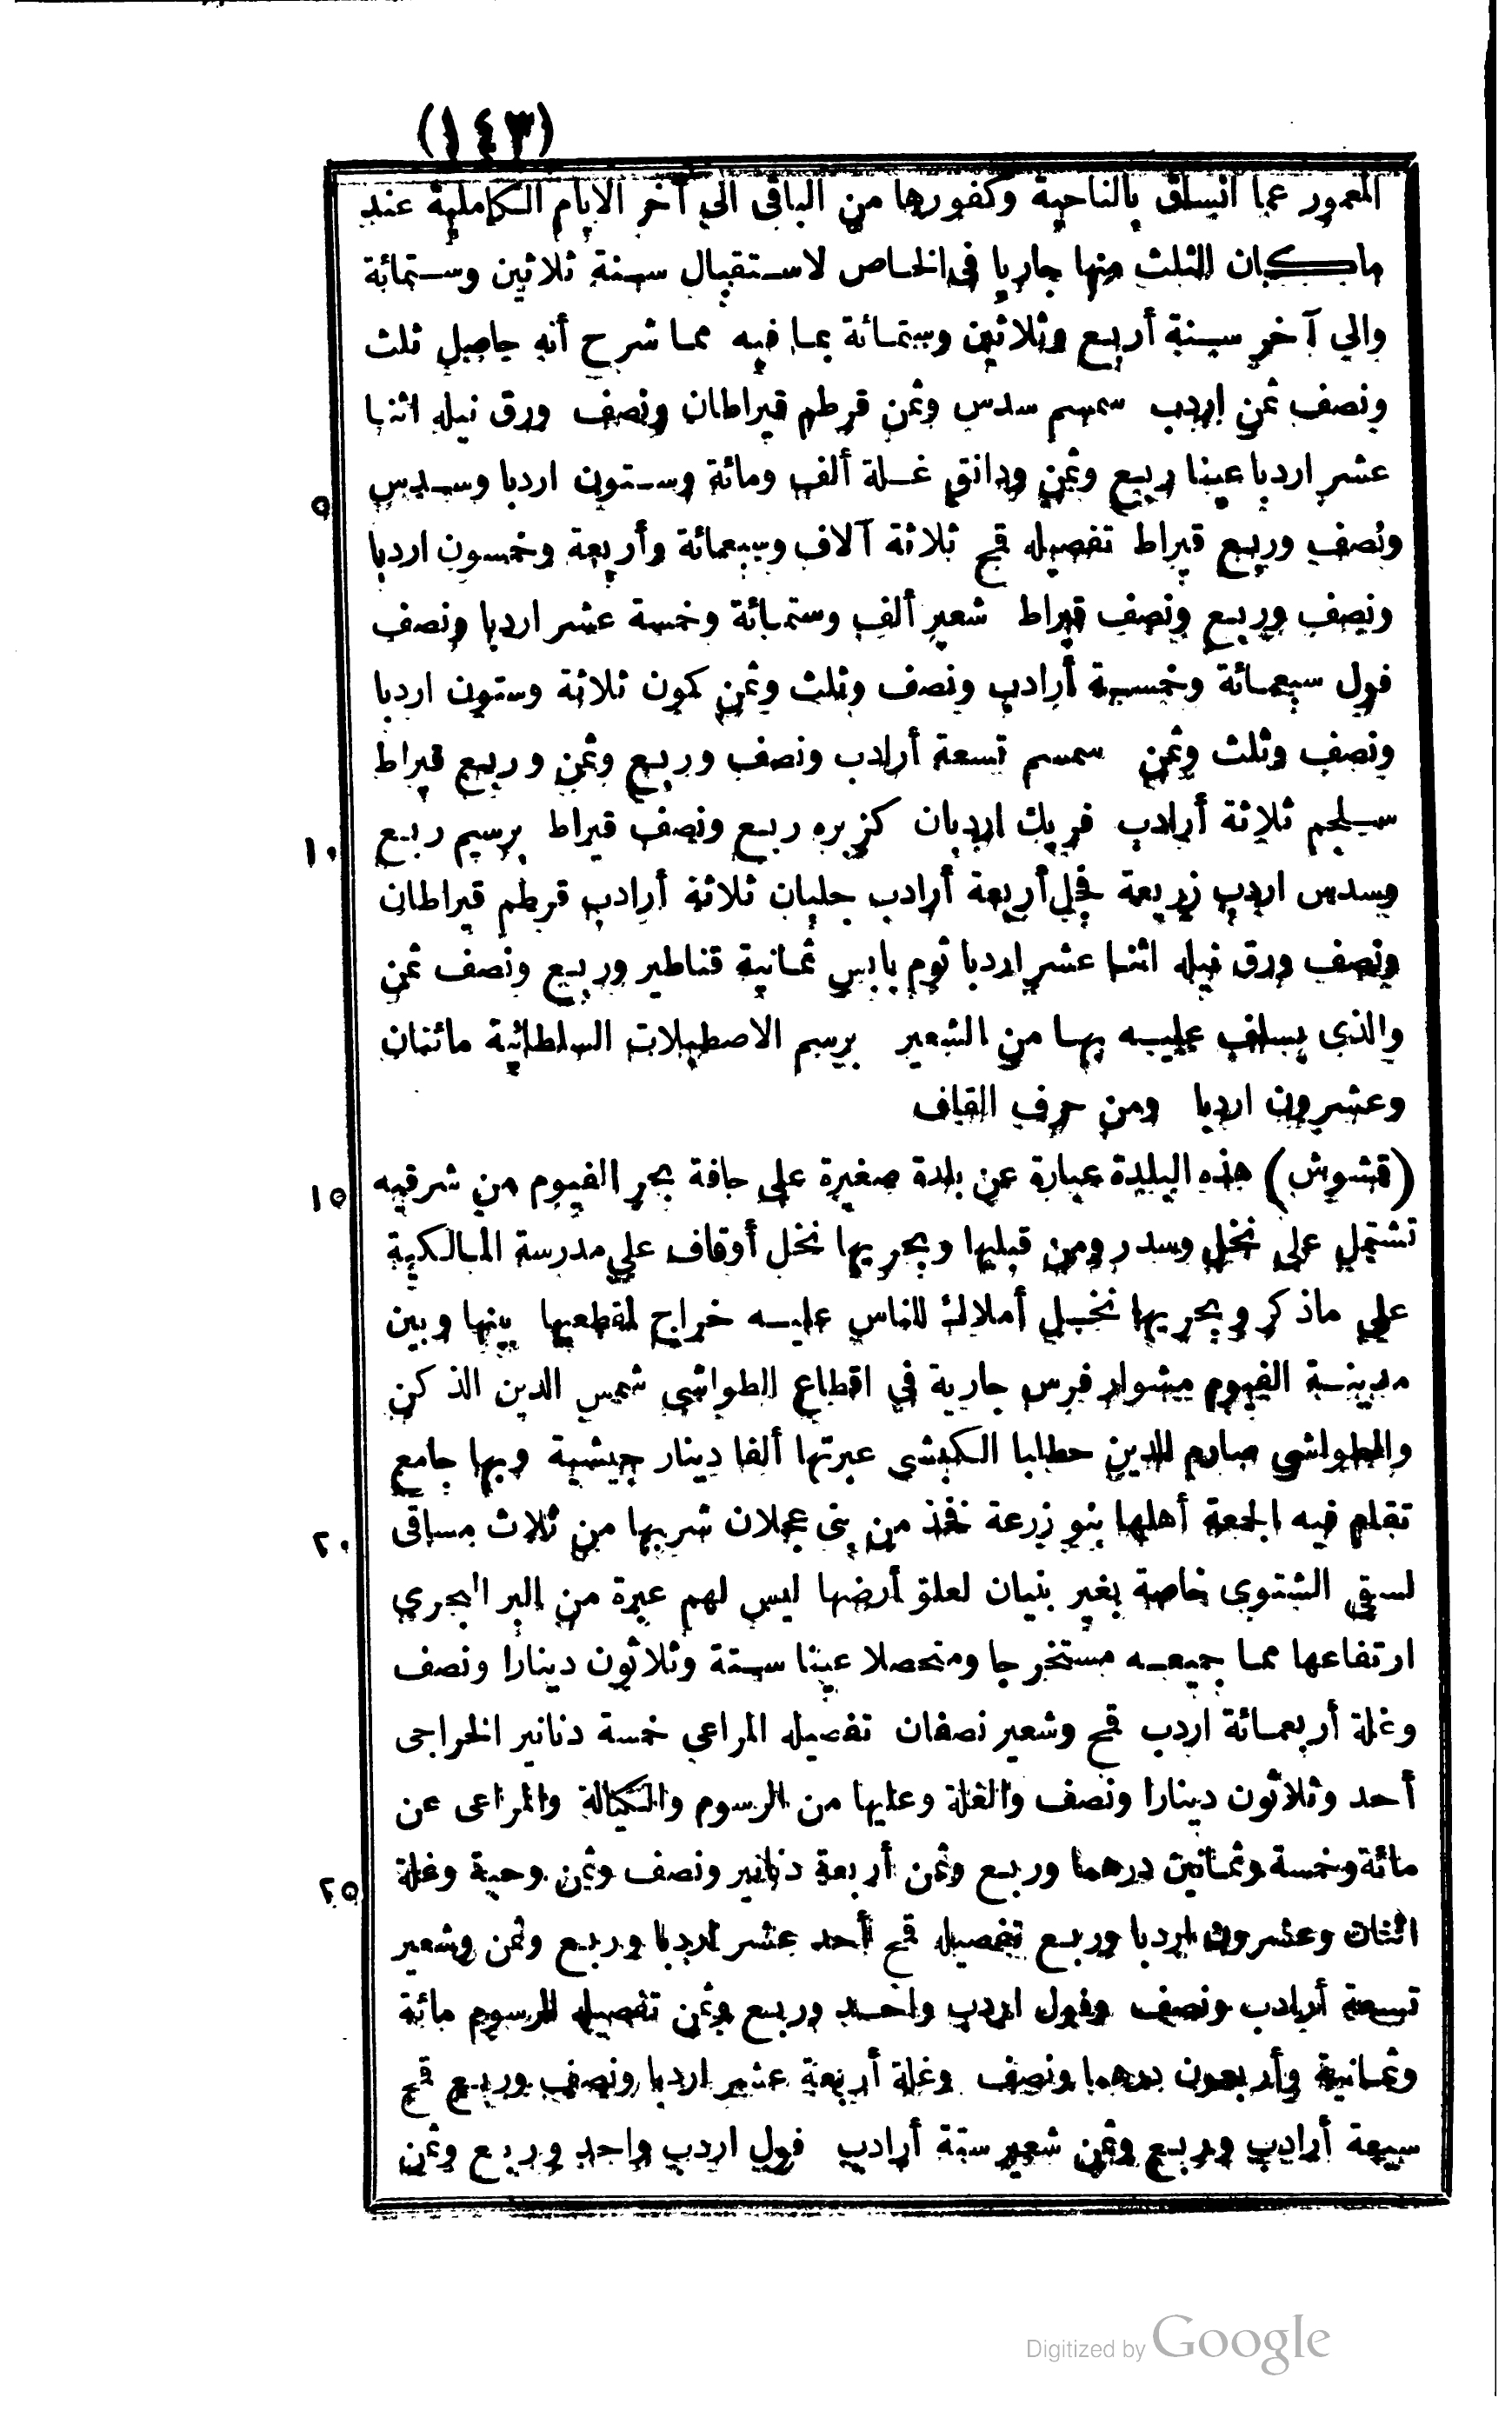 (١٤٣)
المعمور عما انساق بالناحية وكفورها من الباقى الي آخر الايام الكاملية عند
ماكان الثلث منها جاريا فى الخاص لاستقبال سنة ثلاثين وستمائة
والي آخر سنة أربع وثلاثين وستمائة بما فيه مما شرح أنه حاصل ثلث
ونصف ثمن اردب سمسم سدس وثمن قرطم قيراطان ونصف ورق نيله اثنا
عشر اردبا عينا ربع وثمن ودانق غلة ألف ومائة وستون اردبا وسدس
٥
ونصف وربع قيراط تفصيله قمح ثلاثة آلاف وسبعمائة وأربعة وخمسون اردبا
ونصف وربع ونصف قيراط شعير ألف وستمائة وخمسة عشر اردبا ونصف
فول سبعمائة وخمسة أرادب ونصف وثلث وثمن كمون ثلاثة وستون اردبا
ونصف وثلث وثمن سمسم تسعة أرادب ونصف وربع وثمن وربع قيراط
سلجم ثلاثة أرادب فريك اردبان كزبره ربع ونصف قيراط برسيم ربع
١٠
وسدس اردب زريعة فجل أربعة أرادب جلبان ثلاثة أرادب قرطم قيراطان
ونصف ورق نيله اثنا عشر اردبا ثوم يابس ثمانية قناطير وربع ونصف ثمن
والذى يسلف عليه بها من الشعير برسم الاصطبلات السلطانية مائتان
وعشرون اردبا ومن حرف القاف
(قشوش) هذه البلدة عبارة عن بلدة صغيرة على حافة بحر الفيوم من شرقيه
١٥
تشتمل على نخل وسدر ومن قبليها وبحريها نخل أوقاف علي مدرسة المالكية
علي ماذكر وبحريها نخيل أملاك للناس عليه خراج لمقطعيها بينها وبين
مدينة الفيوم مشوار فرس جارية في اقطاع الطواشى شمس الدين الذكن
والطواشى صارم الدين خطلبا الكبشى عبرتها ألفا دينار جيشية وبها جامع
تقام فيه الجمعة أهلها بنو زرعة فخذ من بنى عجلان شربها من ثلاث مساقى
٢٠
لسقى الشتوى خاصة بغير بنيان لعلو أرضها ليس لهم عبرة من البر البحري
ارتفاعها مما جميعه مستخرجا ومتحصلا عينا ستة وثلاثون دينارا ونصف
وغلة أربعمائة اردب قمح وشعير نصفان تفصيله المراعي خمسة دنانير الخراجى
أحد وثلاثون دينارا ونصف والغلة وعليها من الرسوم والكيالة والمراعى عن
مائة وخمسة وثمانين درهما وربع وثمن أربعة دنانير ونصف وثمن وحبة وغلة
٢٥
اثنان وعشرون اردبا وربع تفصيله قمح أحد عشر اردبا وربع وثمن وشعير
تسعة أرادب ونصف وفول اردب واحد وربع وثمن تفصيله الرسوم مائة
وثمانية وأربعون درهما ونصف وغلة أربعة عشر اردبا ونصف وربع قمح
سبعة أرادب وربع وثمن شعير ستة أرادب فول اردب واحد وربع وثمن
Digitized by Google